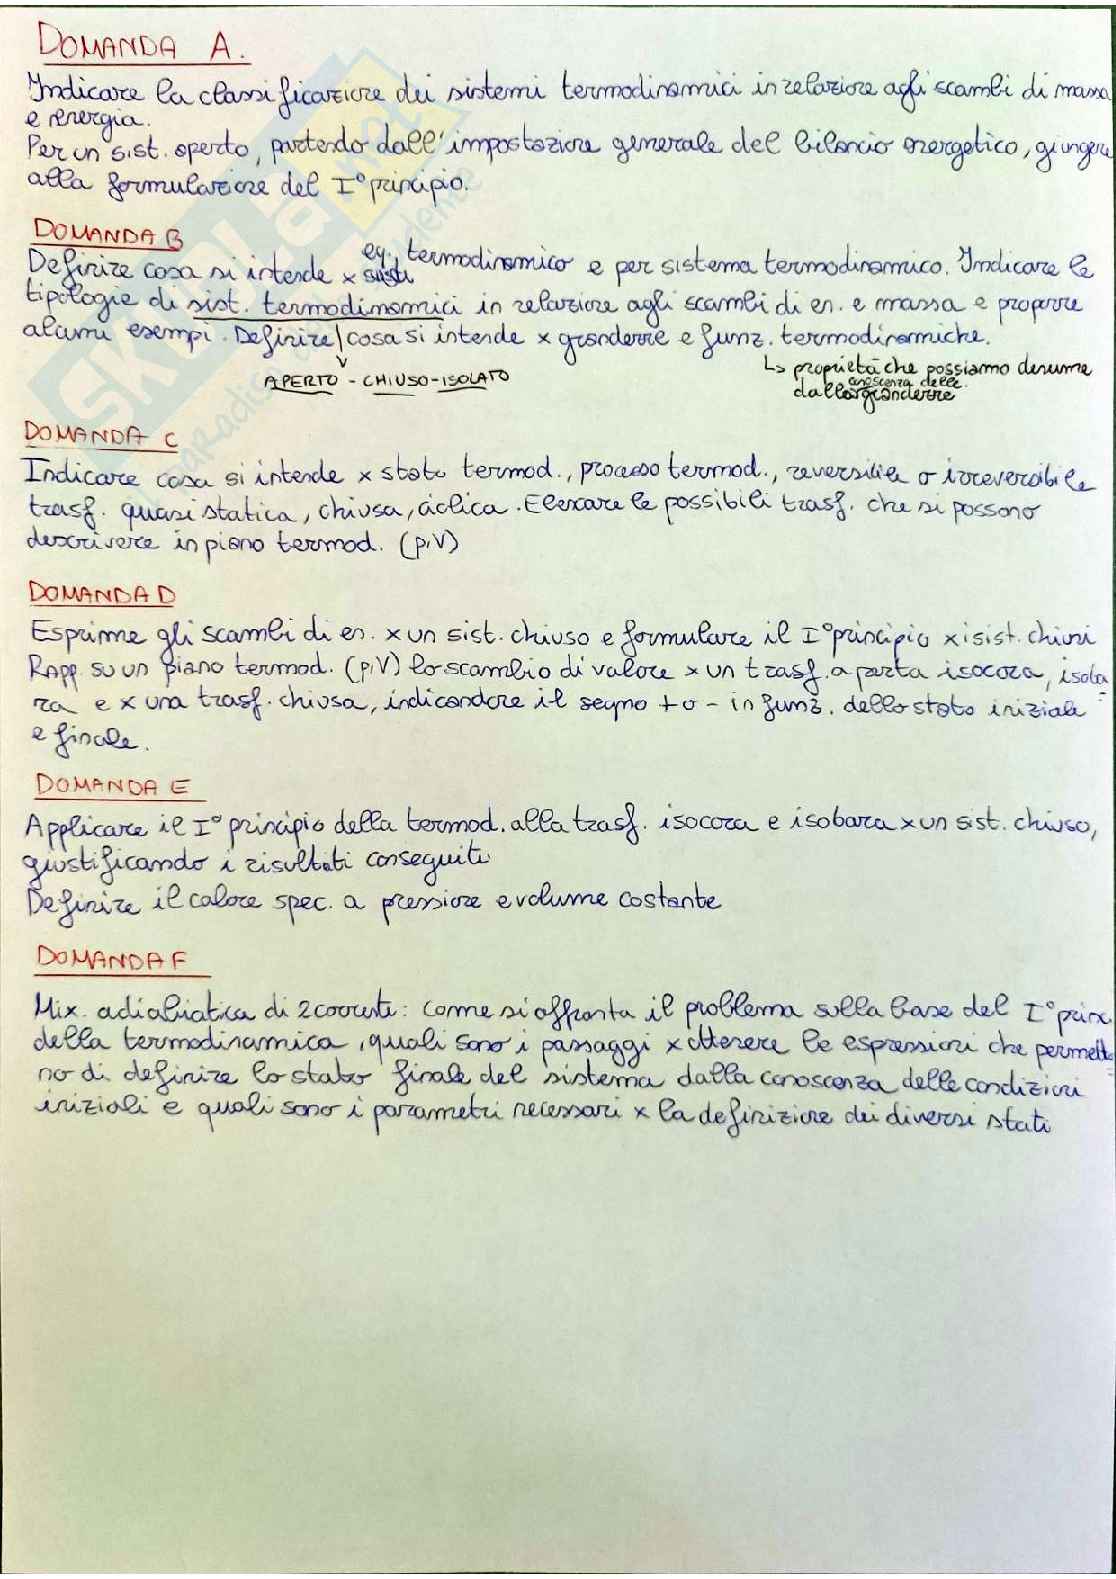 DOMANDA A.
Indicare la classificazione dei sistemi termodinamici in relazione agli scambi di massa
e energia.
Per un sist. aperto, partendo dall'impostazione generale del bilancio energetico, giungere
alla formulazione del I° principio.
DOMANDA B
Definire cosa si intende x eq. termodinamico e per sistema termodinamico. Indicare le
tipologie di sist. termodinamici in relazione agli scambi di en. e massa e proporre
alcuni esempi. Definire cosa si intende x grandezze e funz. termodinamiche.
APERTO - CHIUSO - ISOLATO
↳ proprietà che possiamo desumere
dalla conoscenza delle grandezze
DOMANDA C
Indicare cosa si intende x stato termod., processo termod., reversibile o irreversibile
trasf. quasi statica, chiusa, ciclica. Elencare le possibili trasf. che si possono
descrivere in piano termod. (p,V)
DOMANDA D
Esprime gli scambi di en. x un sist. chiuso e formulare il I° principio x i sist. chiusi
Rapp. su un piano termod. (p,V) lo scambio di valore x un trasf. aperta isocora, isoba-
ra e x una trasf. chiusa, indicandone il segno + o - in funz. dello stato iniziale
e finale.
DOMANDA E
Applicare il I° principio della termod. alla trasf. isocora e isobara x un sist. chiuso,
giustificando i risultati conseguiti
Definire il calore spec. a pressione e volume costante
DOMANDA F
Mix. adiabatica di 2 correnti: come si affronta il problema sulla base del I° princ.
della termodinamica, quali sono i passaggi x ottenere le espressioni che permetto
no di definire lo stato finale del sistema dalla conoscenza delle condizioni
iniziali e quali sono i parametri necessari x la definizione dei diversi stati